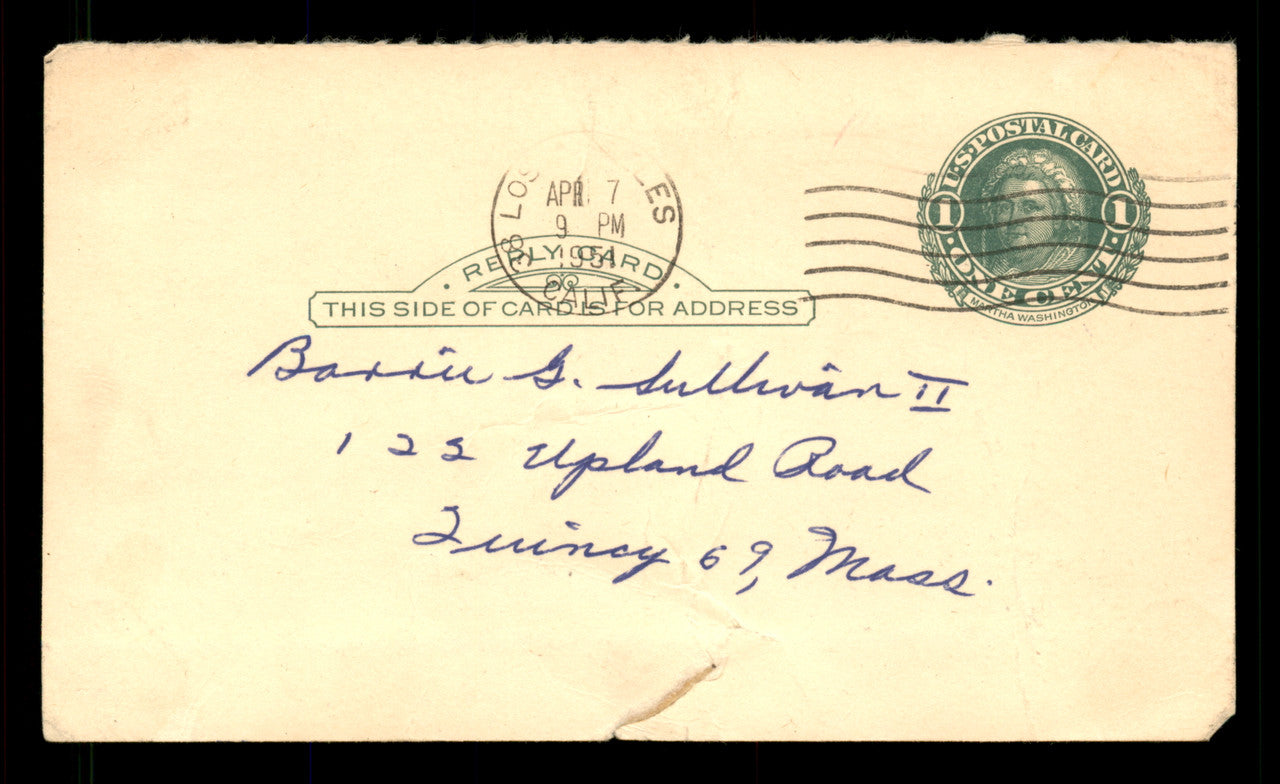 U.S. POSTAL CARD
1 1
ONE CENT
MARTHA WASHINGTON
LOS ANGELES
APR 7
9 PM
1951
CALIF
REPLY CARD
THIS SIDE OF CARD IS FOR ADDRESS
Barrie G. Sullivan II
122 Upland Road
Quincy 69, Mass.